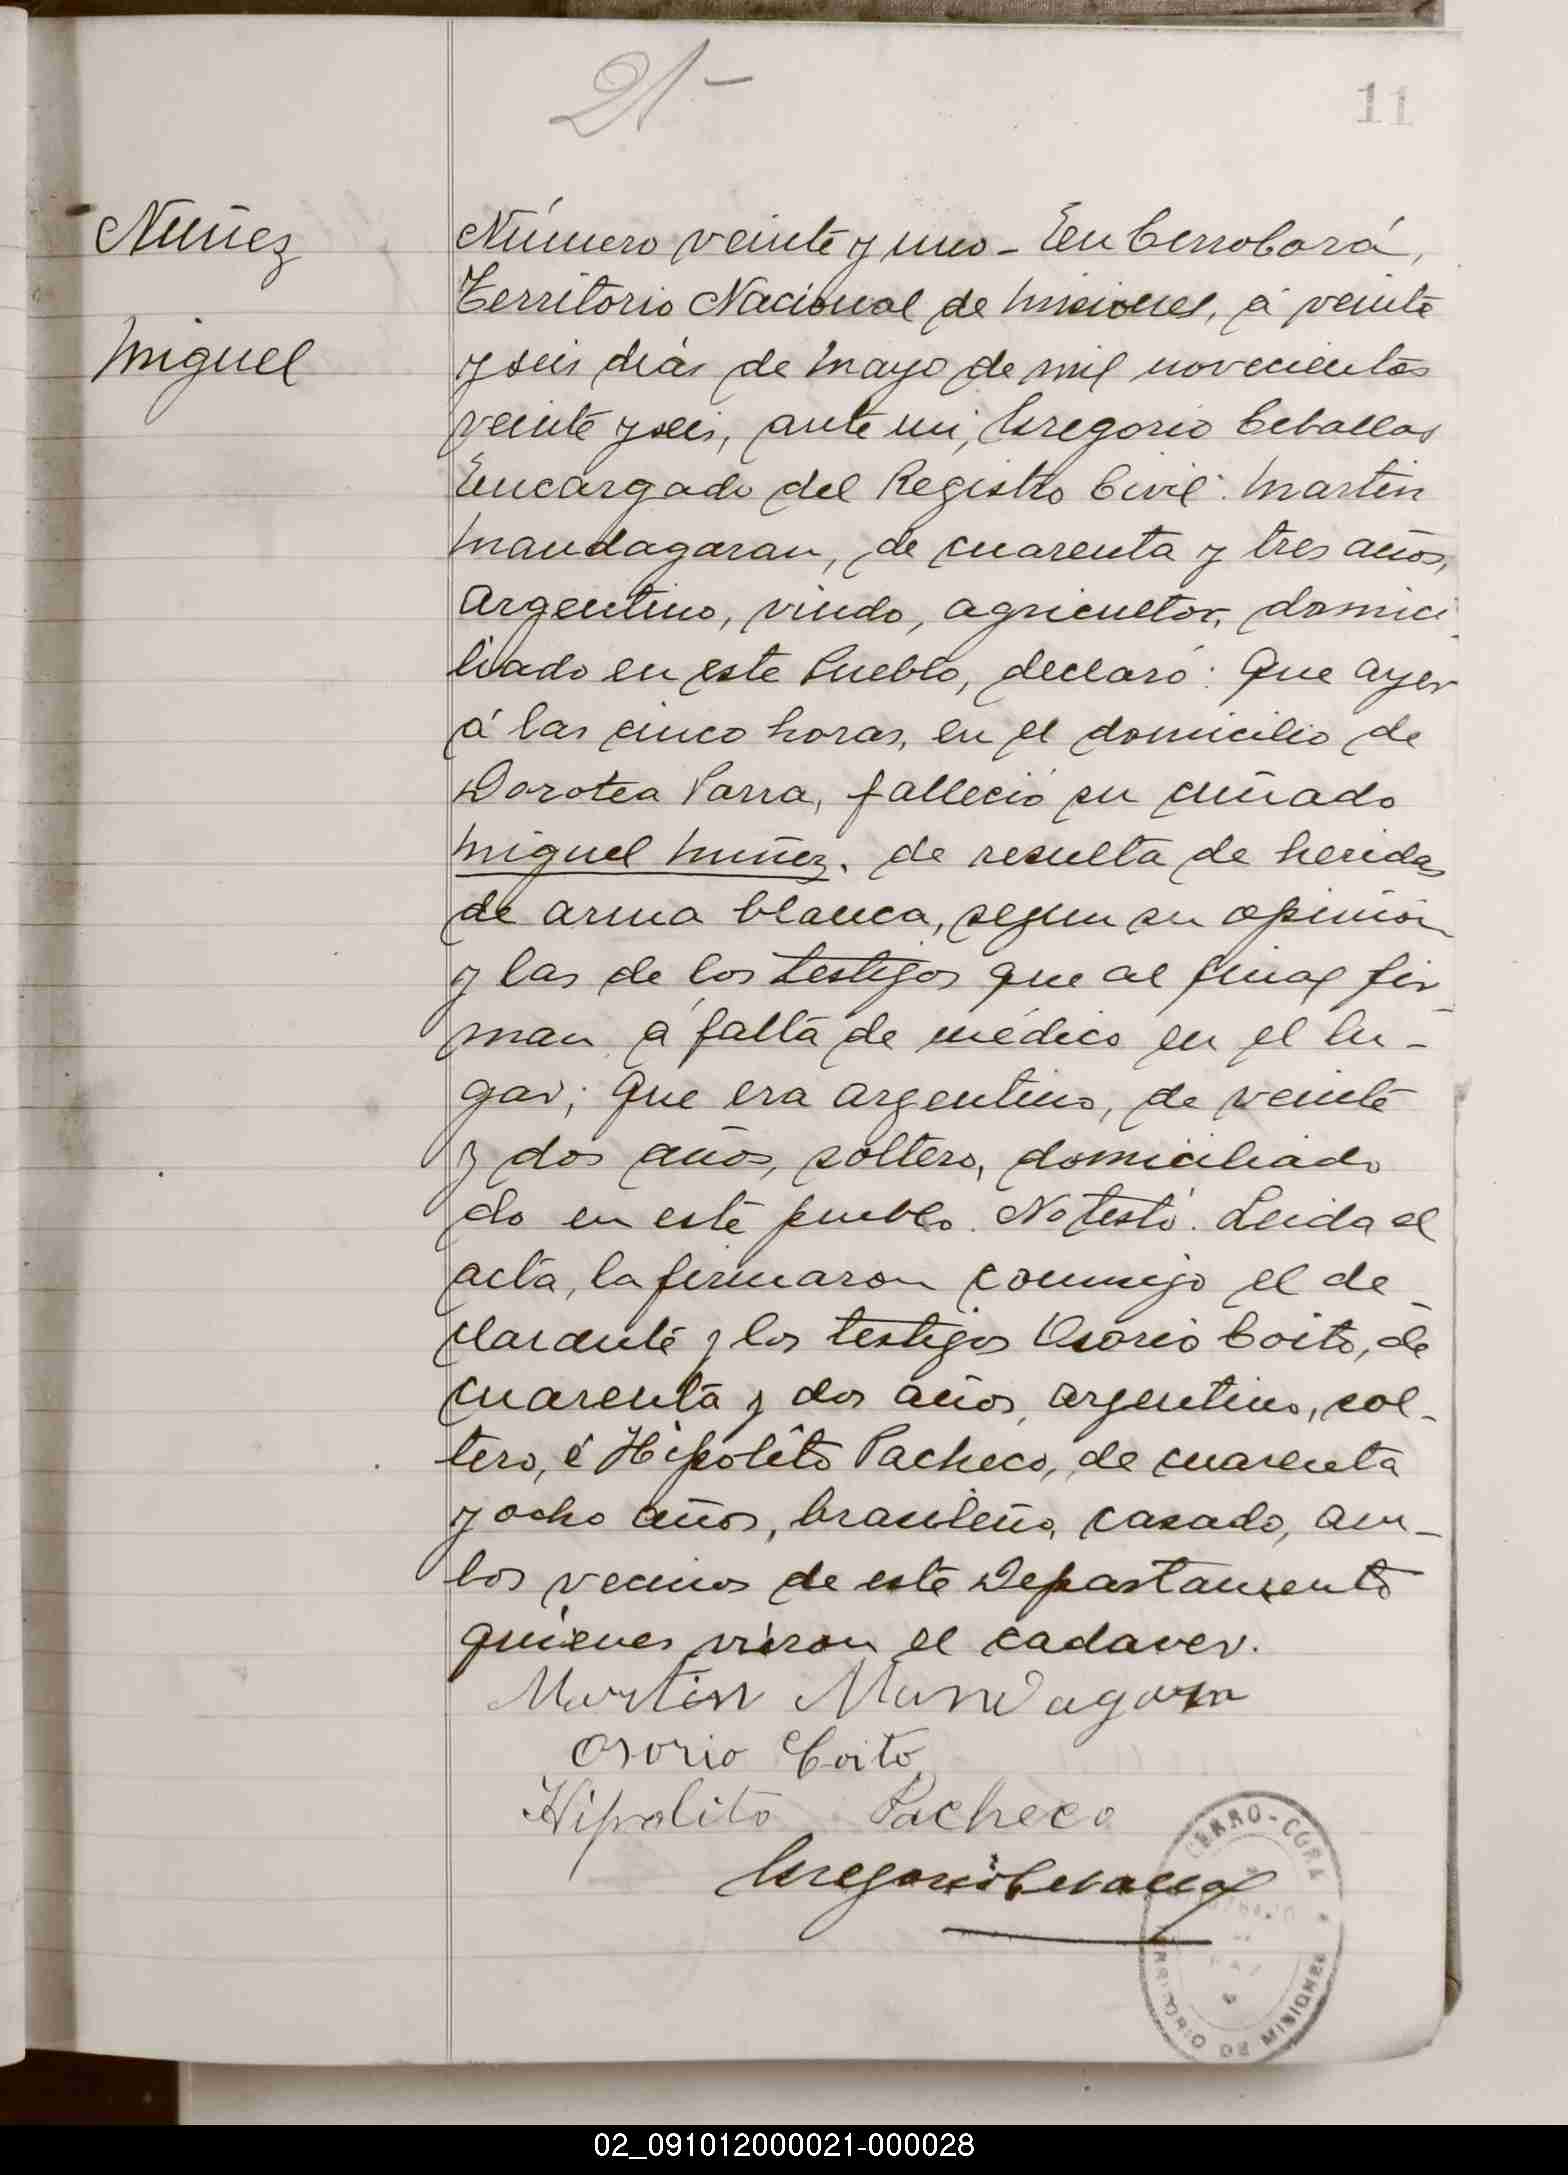 21-
11
Nuñez
Miguel
Número veinte y uno - En Cerro Corá,
Territorio Nacional de Misiones, á veinte
y seis dias de Mayo de mil novecientos
veinte y seis, ante mi, Gregorio Ceballos
Encargado del Registro Civil: Martin
Mandagaran, de cuarenta y tres años,
Argentino, viudo, agricultor, domici
liado en este Pueblo, declaró: Que ayer
á las cinco horas, en el domicilio de
Dorotea Parra, falleció su cuñado
Miguel Nuñez, de resulta de heridas
de arma blanca, segun su opinión
y las de los testigos que al final fir
man á falta de médico en el lu-
gar; Que era argentino, de veinte
y dos años, soltero, domiciliado
do en este pueblo. No testó. Leida el
acta, la firmaron conmigo el de
clarante y los testigos Osorio Coito, de
cuarenta y dos años, argentino, sol-
tero, é Hipólito Pacheco, de cuarenta
y ocho años, brasileño, casado, am-
bos vecinos de este Departamento
quienes vieron el cadaver.
Martin Mandagaran
Osorio Coito
Hipolito Pacheco
Gregorio Ceballos
CERRO-CORA
TERRITORIO DE MISIONES
02_091012000021-000028